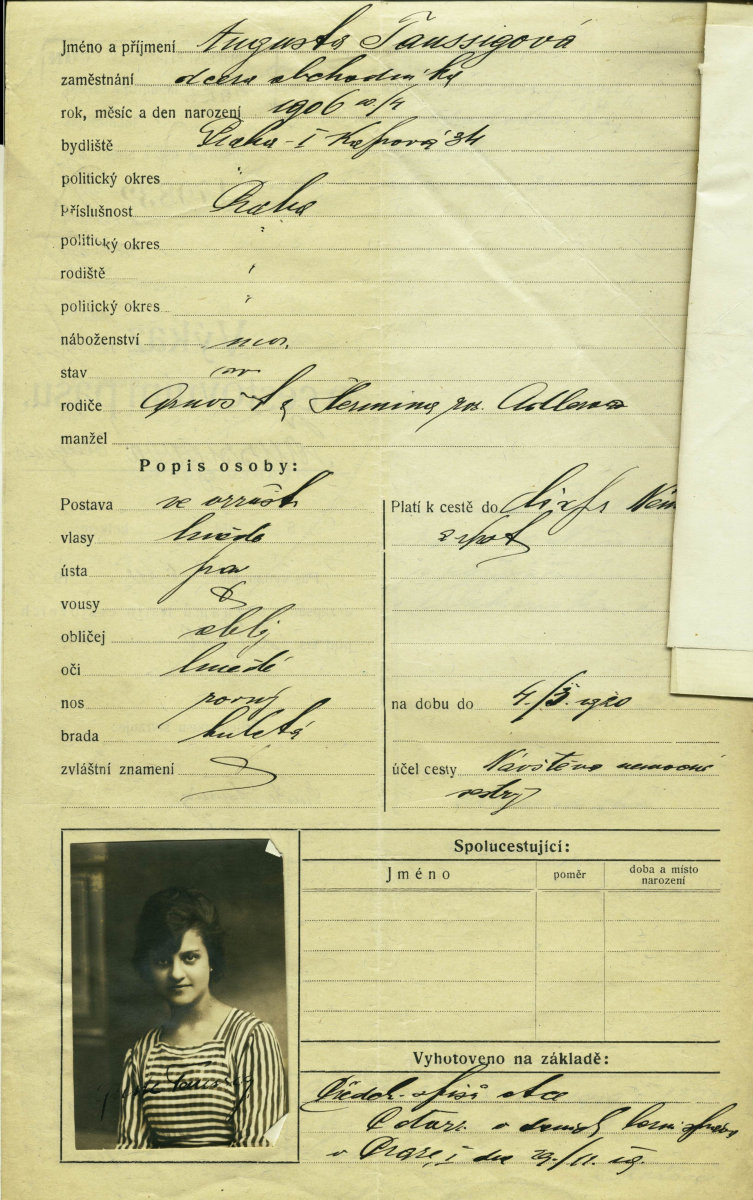 Jméno a příjmení Augusta Taussigová
zaměstnání dcera obchodníka
rok, měsíc a den narození 1906
bydliště Praha-I Kaprova 34
politický okres
příslušnost Praha
politický okres "
rodiště "
politický okres "
náboženství
stav
rodiče Arnošt a Hermina roz. Adlerova
manžel
Popis osoby:
Postava ve vzrůstu
vlasy hnědé
ústa
vousy
obličej oblý
oči hnědé
nos rovný
brada kulatá
zvláštní znamení
Platí k cestě do
a zpět
na dobu do 4./3. 1920
účel cesty Návštěva nemocné
sestry
Spolucestující:
Jméno poměr doba a místo narození
Vyhotoveno na základě:
otce
v Praze I dne 29./11. 19.